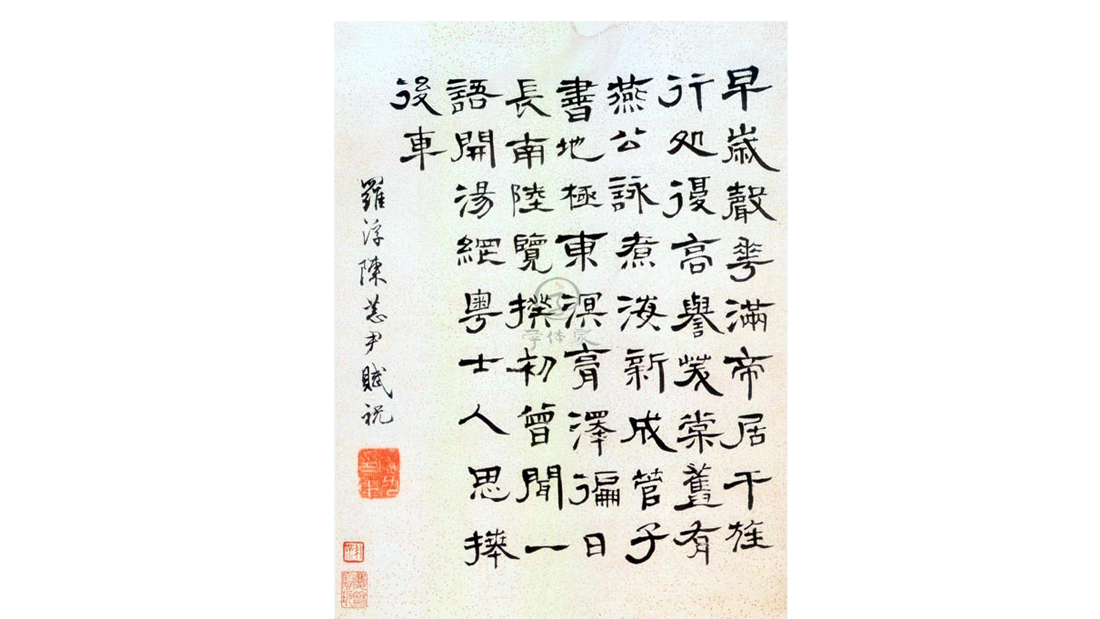 早歲聲華滿帝居干旌
行処復高譽茇棠舊有
燕公詠煮海新成管子
書地極東溟膏澤徧日
長南陸覽揆初曾聞一
語開湯網粵士人思捧
後車
羅浮陳恭尹賦祝
字体家